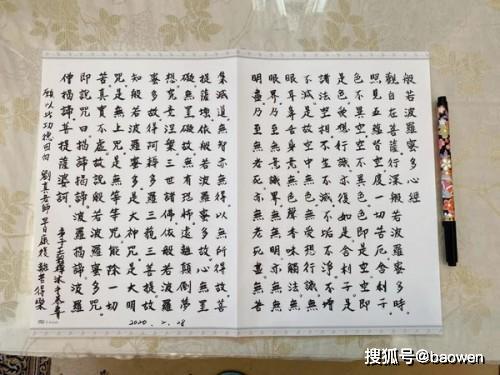 般若波羅蜜多心經
觀自在菩薩行深般若波羅蜜多時
照見五蘊皆空度一切苦厄舍利子
色不異空空不異色色即是空空即
是色受想行識亦復如是舍利子是
諸法空相不生不滅不垢不淨不增
不減是故空中無色無受想行識無
眼耳鼻舌身意無色聲香味觸法無
眼界乃至無意識界無無明亦無無
明盡乃至無老死亦無老死盡無苦
集滅道無智亦無得以無所得故菩
提薩埵依般若波羅蜜多故心無罣
礙無罣礙故無有恐怖遠離顛倒夢
想究竟涅槃三世諸佛依般若波羅
蜜多故得阿耨多羅三藐三菩提故
知般若波羅蜜多是大神咒是大明
咒是無上咒是無等等咒能除一切
苦真實不虛故說般若波羅蜜多咒
即說咒曰揭諦揭諦波羅揭諦波羅
僧揭諦菩提薩婆訶
弟子沐手恭奉
願以此功德回向 劉真老師早日康復 離苦得樂
2020.2.28
搜狐号@baowen